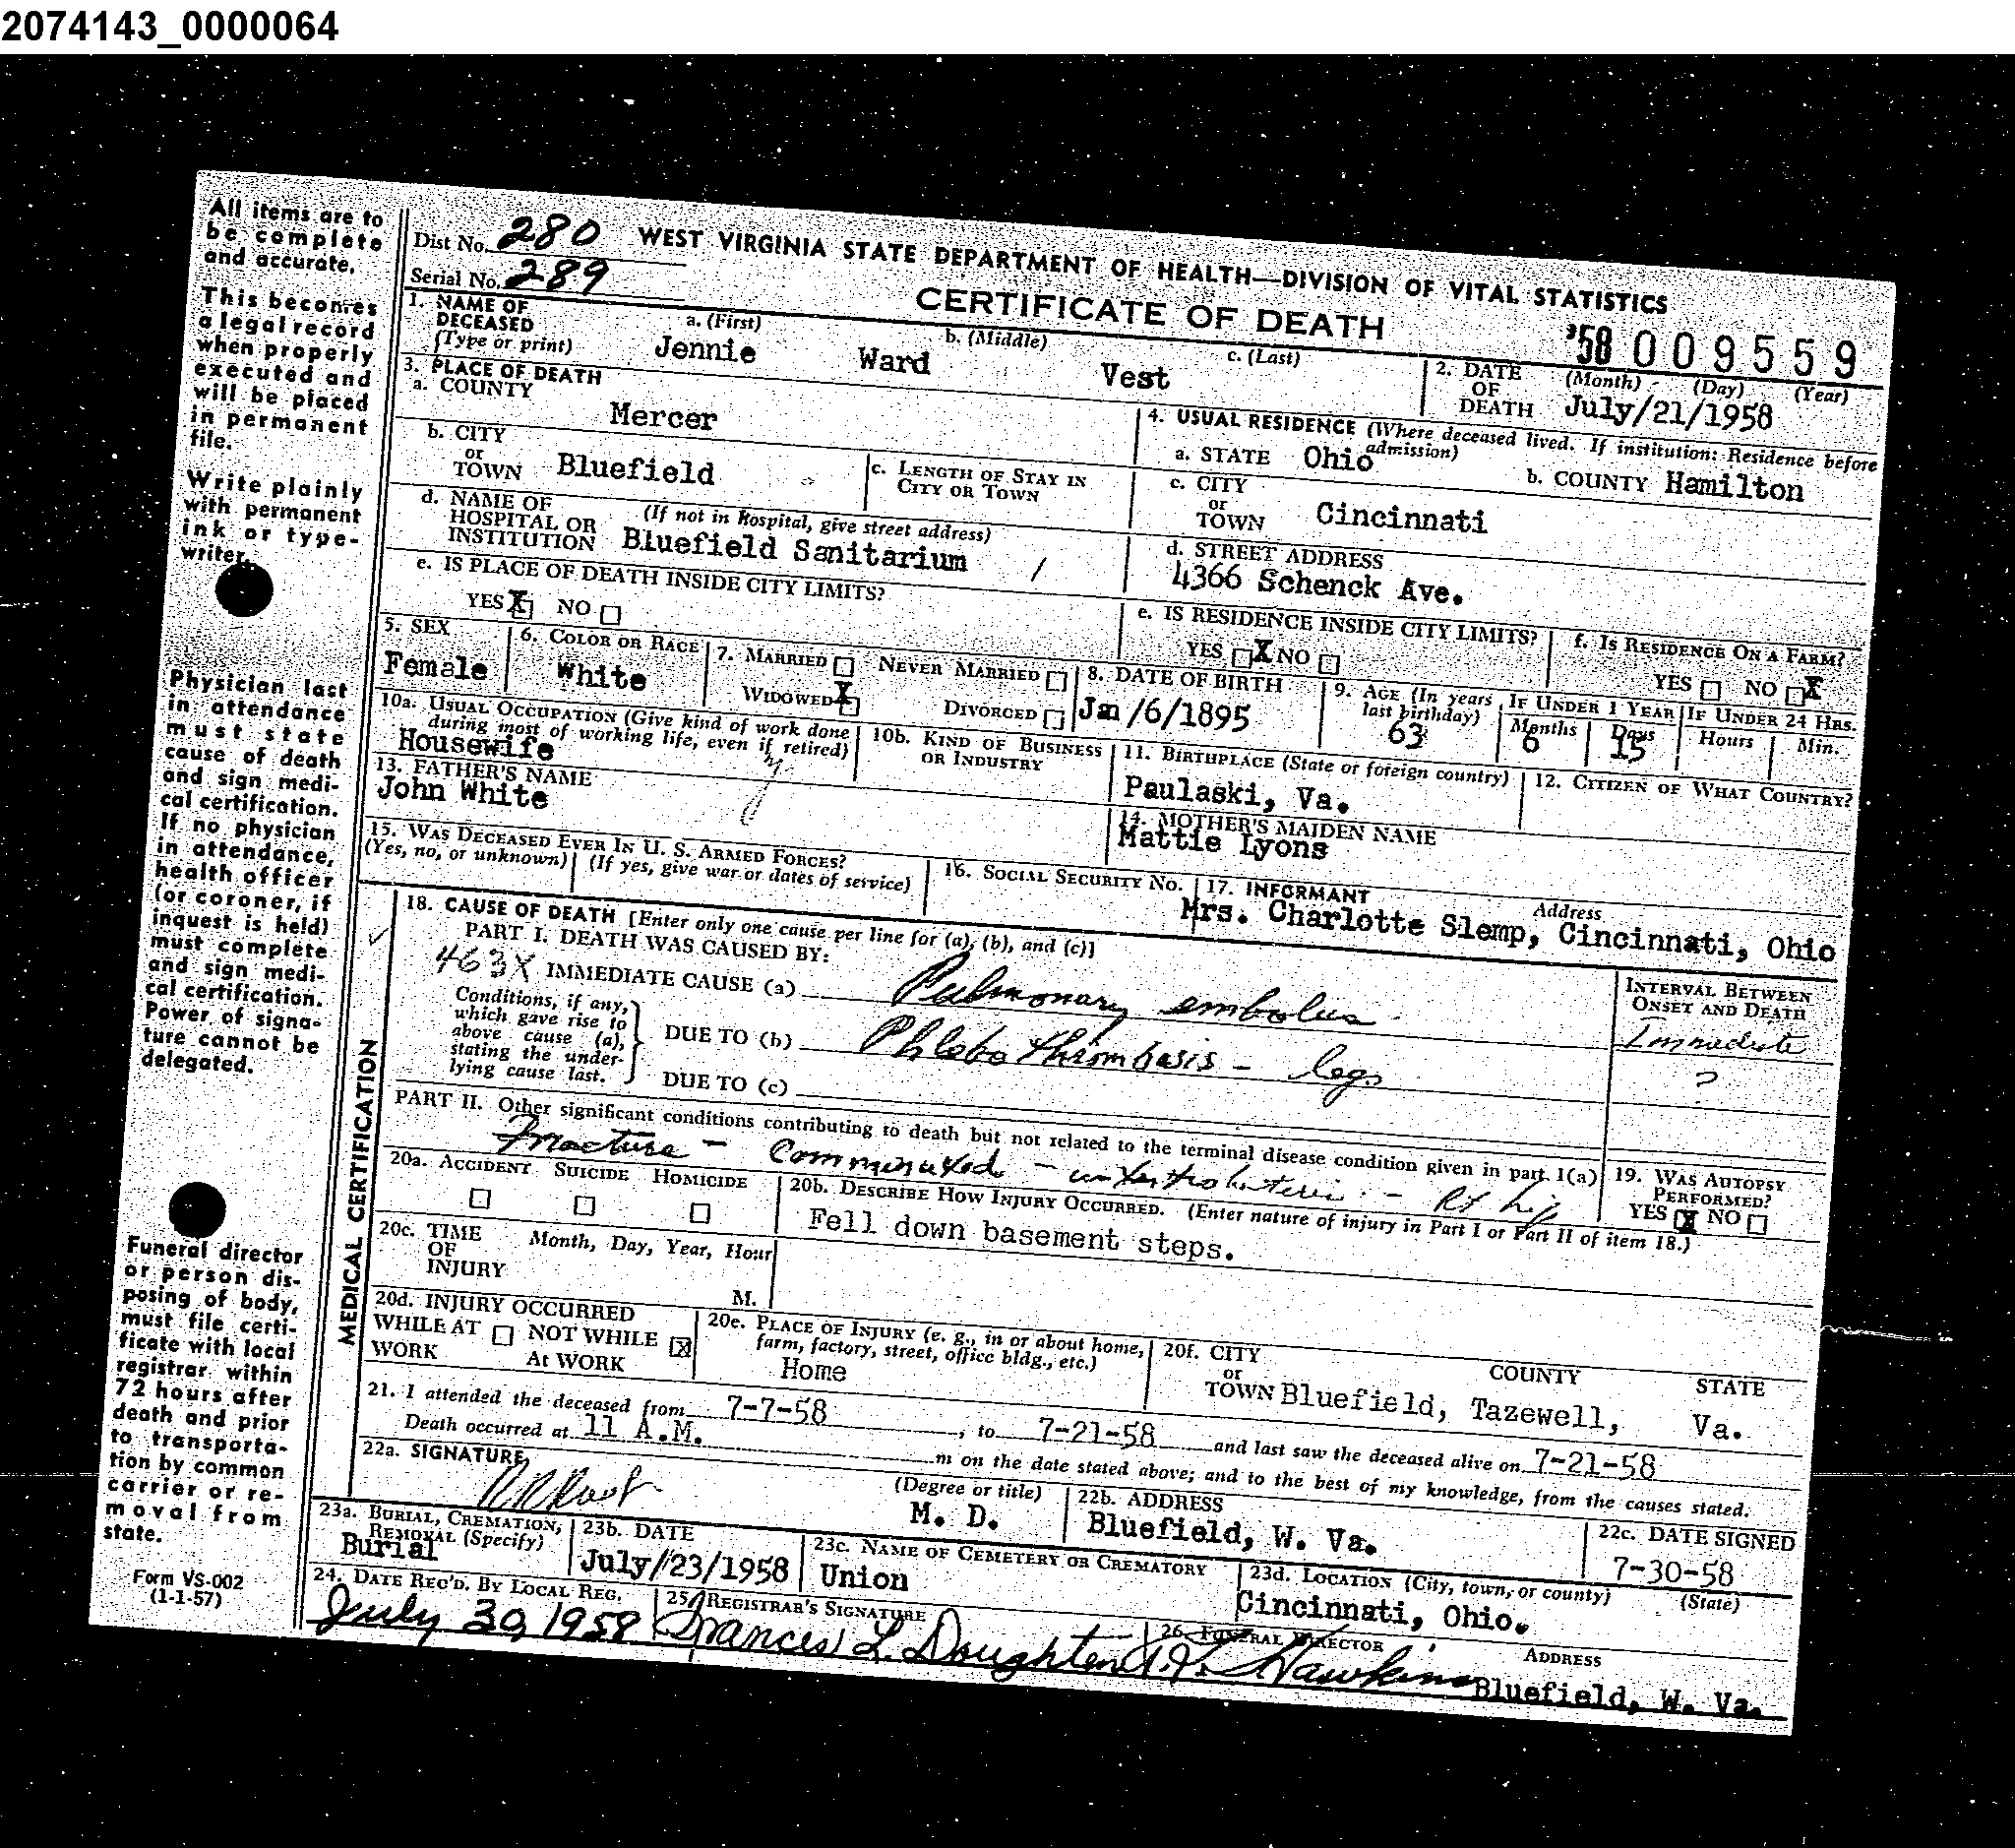 2074143_0000064
All items are to
be complete
and accurate.
This becomes
a legal record
when properly
executed and
will be placed
in permanent
file.
Write plainly
with permanent
ink or type-
writer.
Physician last
in attendance
must state
cause of death
and sign medi-
cal certification.
If no physician
in attendance,
health officer
(or coroner, if
inquest is held)
must complete
and sign medi-
cal certification.
Power of signa-
ture cannot be
delegated.
Funeral director
or person dis-
posing of body,
must file certi-
ficate with local
registrar within
72 hours after
death and prior
to transporta-
tion by common
carrier or re-
moval from
state.
Form VS-002
(1-1-57)
Dist No. 280 WEST VIRGINIA STATE DEPARTMENT OF HEALTH—DIVISION OF VITAL STATISTICS
Serial No. 289
CERTIFICATE OF DEATH
'58 009559
1. NAME OF DECEASED (Type or print) a. (First) Jennie b. (Middle) Ward c. (Last) Vest
2. DATE OF DEATH (Month) (Day) (Year) July/21/1958
3. PLACE OF DEATH
a. COUNTY Mercer
4. USUAL RESIDENCE (Where deceased lived. If institution: Residence before admission)
a. STATE Ohio b. COUNTY Hamilton
b. CITY or TOWN Bluefield c. LENGTH OF STAY IN CITY OR TOWN
c. CITY or TOWN Cincinnati
d. NAME OF HOSPITAL OR INSTITUTION (If not in hospital, give street address) Bluefield Sanitarium /
d. STREET ADDRESS 4366 Schenck Ave.
e. IS PLACE OF DEATH INSIDE CITY LIMITS? YES X NO
e. IS RESIDENCE INSIDE CITY LIMITS? YES X NO
f. IS RESIDENCE ON A FARM? YES NO X
5. SEX Female
6. COLOR OR RACE White
7. MARRIED NEVER MARRIED WIDOWED X DIVORCED
8. DATE OF BIRTH Jan/6/1895
9. AGE (In years last birthday) 63 IF UNDER 1 YEAR Months 6 Days 15 IF UNDER 24 HRS. Hours Min.
10a. USUAL OCCUPATION (Give kind of work done during most of working life, even if retired) Housewife
10b. KIND OF BUSINESS OR INDUSTRY
11. BIRTHPLACE (State or foreign country) Paulaski, Va.
12. CITIZEN OF WHAT COUNTRY?
13. FATHER'S NAME John White
14. MOTHER'S MAIDEN NAME Mattie Lyons
15. WAS DECEASED EVER IN U. S. ARMED FORCES? (Yes, no, or unknown) (If yes, give war or dates of service)
16. SOCIAL SECURITY NO.
17. INFORMANT Address Mrs. Charlotte Slemp, Cincinnati, Ohio
MEDICAL CERTIFICATION
18. CAUSE OF DEATH [Enter only one cause per line for (a), (b), and (c)]
PART I. DEATH WAS CAUSED BY:
463X IMMEDIATE CAUSE (a) Pulmonary embolus
INTERVAL BETWEEN ONSET AND DEATH
Immediate
Conditions, if any, which gave rise to above cause (a), stating the under-lying cause last.
DUE TO (b) Phlebothrombosis - legs ?
DUE TO (c)
PART II. Other significant conditions contributing to death but not related to the terminal disease condition given in part I(a)
Fracture - Comminuted - intertrochanteric - Rt hip
19. WAS AUTOPSY PERFORMED? YES X NO
20a. ACCIDENT SUICIDE HOMICIDE
20b. DESCRIBE HOW INJURY OCCURRED. (Enter nature of injury in Part I or Part II of item 18.)
Fell down basement steps.
20c. TIME OF INJURY Month, Day, Year, Hour M.
20d. INJURY OCCURRED WHILE AT WORK NOT WHILE At WORK X
20e. PLACE OF INJURY (e. g., in or about home, farm, factory, street, office bldg., etc.) Home
20f. CITY or TOWN COUNTY STATE Bluefield, Tazewell, Va.
21. I attended the deceased from 7-7-58, to 7-21-58 and last saw the deceased alive on 7-21-58
Death occurred at 11 A.M. m on the date stated above; and to the best of my knowledge, from the causes stated.
22a. SIGNATURE (Degree or title) M. D.
22b. ADDRESS Bluefield, W. Va.
22c. DATE SIGNED 7-30-58
23a. BURIAL, CREMATION, REMOVAL (Specify) Burial
23b. DATE July/23/1958
23c. NAME OF CEMETERY OR CREMATORY Union
23d. LOCATION (City, town, or county) (State) Cincinnati, Ohio.
24. DATE REC'D. BY LOCAL REG. July 30, 1958
25. REGISTRAR'S SIGNATURE Frances L. Doughten
26. FUNERAL DIRECTOR Hawkins ADDRESS Bluefield, W. Va.